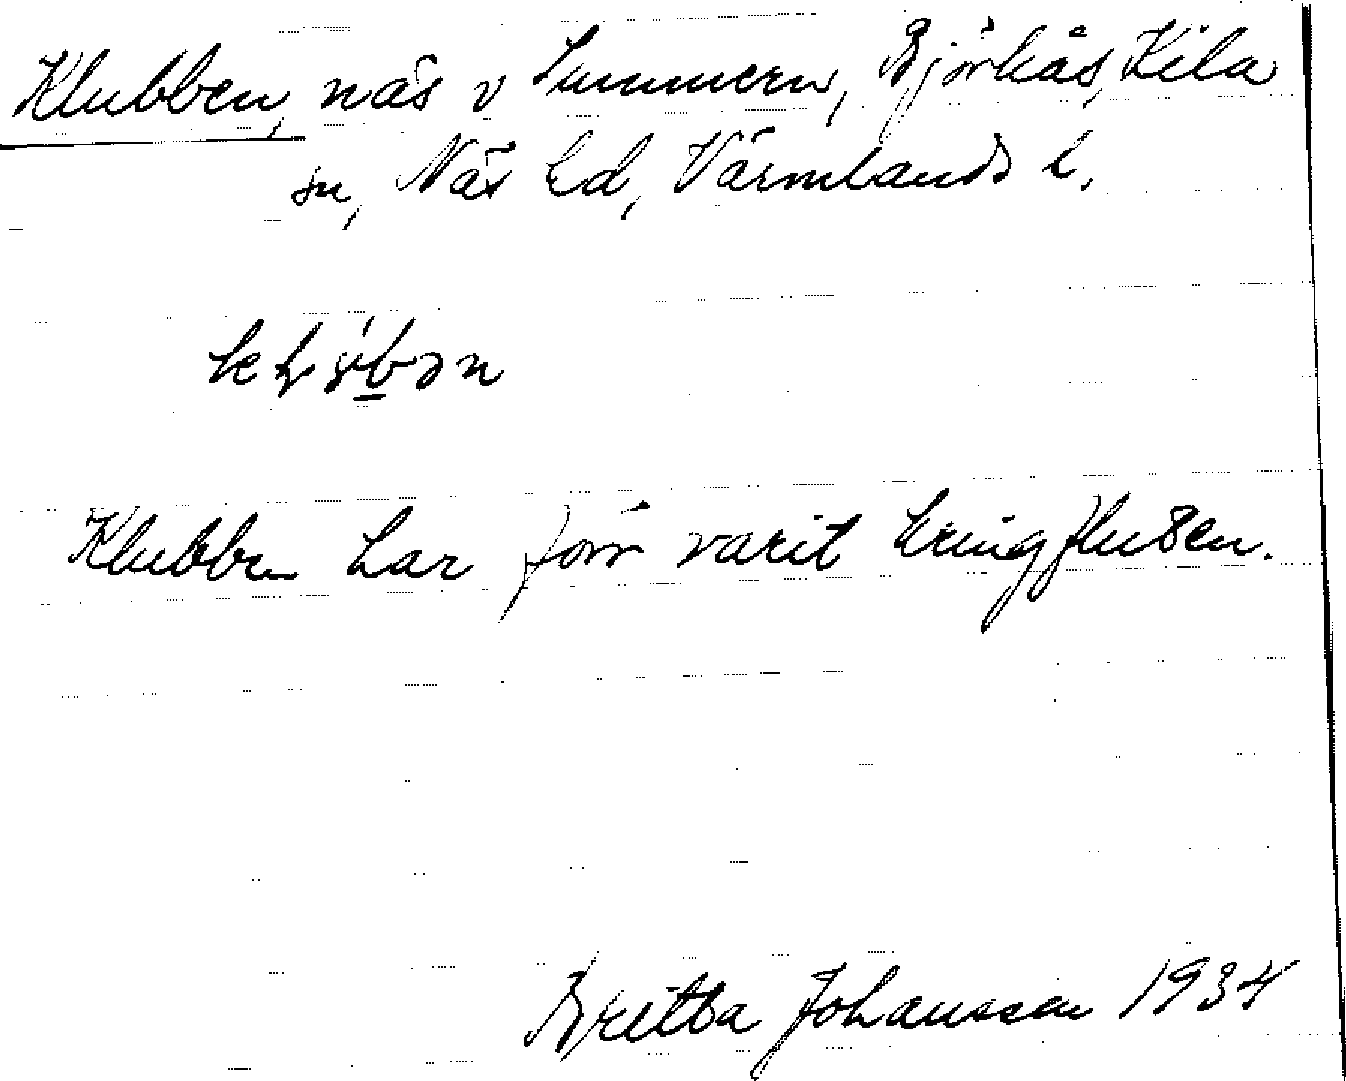 Klubben, näs v Summern, Björkås, Kila
sn, Näs hd, Värmlands l.
Klubben har förr varit kringflusen.
Britta Johansson 1934